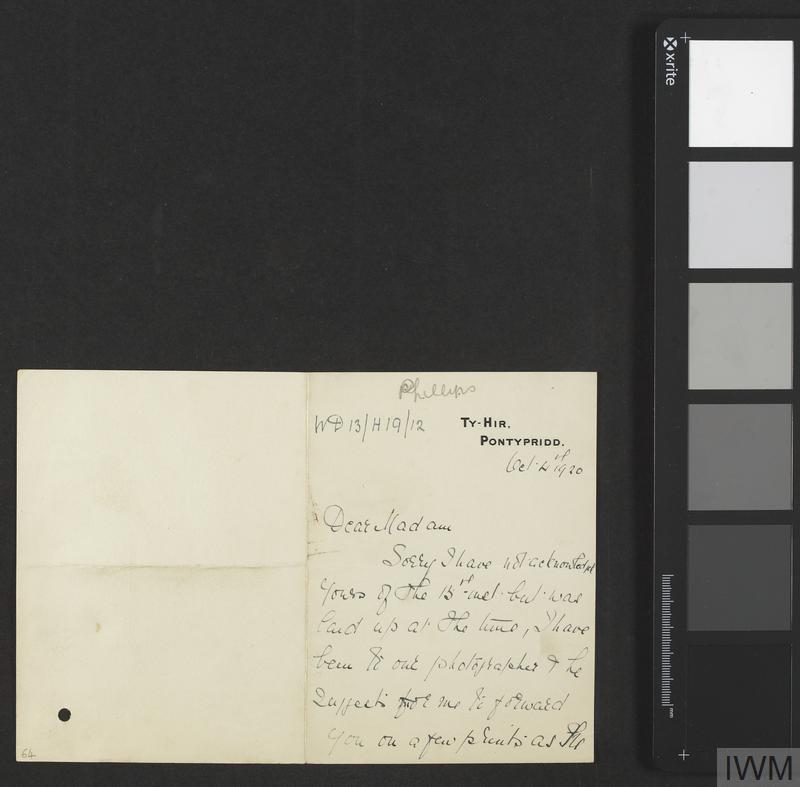 Phillips
WD 13/H19/12
TY-HIR,
PONTYPRIDD.
Oct. 4th 1920
Dear Madam
Sorry I have not acknowledged
yours of the 13th inst. but was
laid up at the time, I have
been to our photographer & he
suggests for me to forward
you on a few prints as the
64
x-rite
mm
IWM